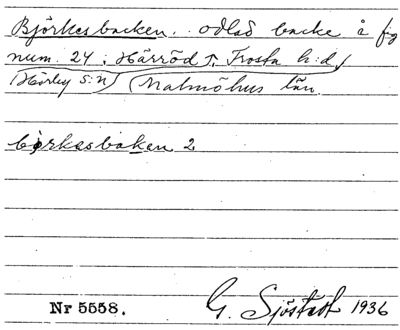 Björkesbacken. odlad backe å fig
num. 24; Härröd T. Frosta h:d,
(Hörby s:n) (Malmöhus län.
börkasbaken 2
Nr 5558. G. Sjöstedt 1936